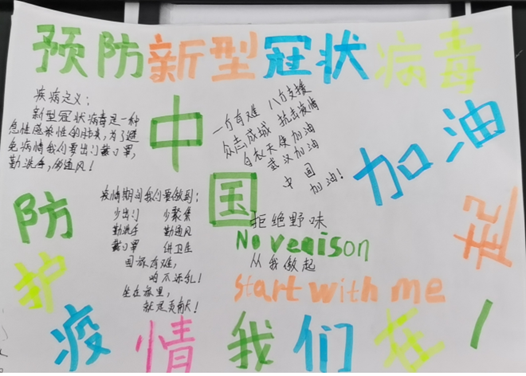 预防新型冠状病毒
疾病定义：
新型冠状病毒是一种
急性感染性的肺炎，为了避
免病情我们要出门戴口罩，
勤洗手，房通风！
一方有难 八方支援
众志成城 抗击疫情
白衣天使加油
武汉加油
中国
加油！
中
国
加油
疫情期间我们要做到：
少出门 少聚集
勤洗手 勤通风
戴口罩 讲卫生
国家有难，
咱不添乱！
坐在家里，
就是贡献！
拒绝野味
No venison
从我做起
Start with me
防
护
疫情我们在一
起